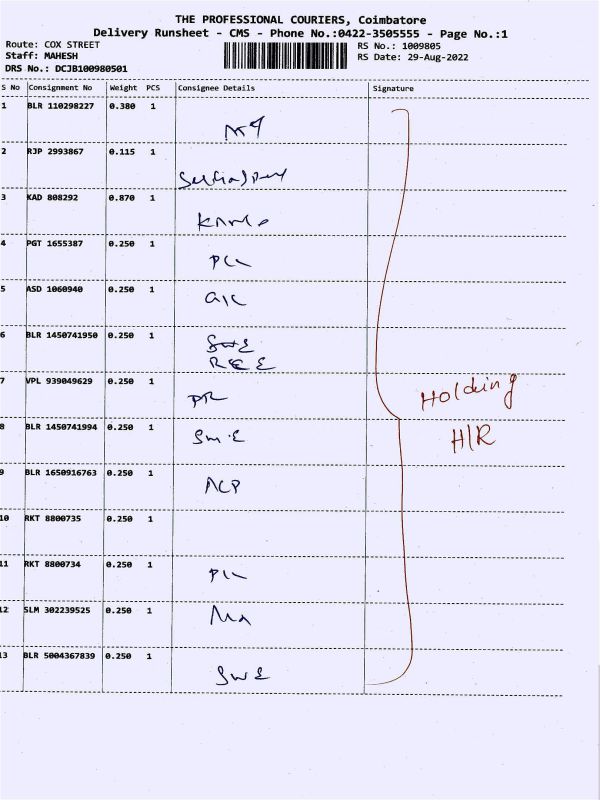 THE PROFESSIONAL COURIERS, Coimbatore
Delivery Runsheet - CMS - Phone No.:0422-3505555 - Page No.:1
Route: COX STREET
Staff: MAHESH
DRS No.: DCJB100980501
RS No.: 1009805
RS Date: 29-Aug-2022
S No Consignment No Weight PCS Consignee Details Signature
1 BLR 110298227 0.380 1
2 RJP 2993867 0.115 1
3 KAD 808292 0.870 1
4 PGT 1655387 0.250 1
5 ASD 1060940 0.250 1
6 BLR 1450741950 0.250 1
7 VPL 939049629 0.250 1
Holding
H/R
8 BLR 1450741994 0.250 1
Sm.E
9 BLR 1650916763 0.250 1
ACP
10 RKT 8800735 0.250 1
11 RKT 8800734 0.250 1
12 SLM 302239525 0.250 1
13 BLR 5004367839 0.250 1
SWE